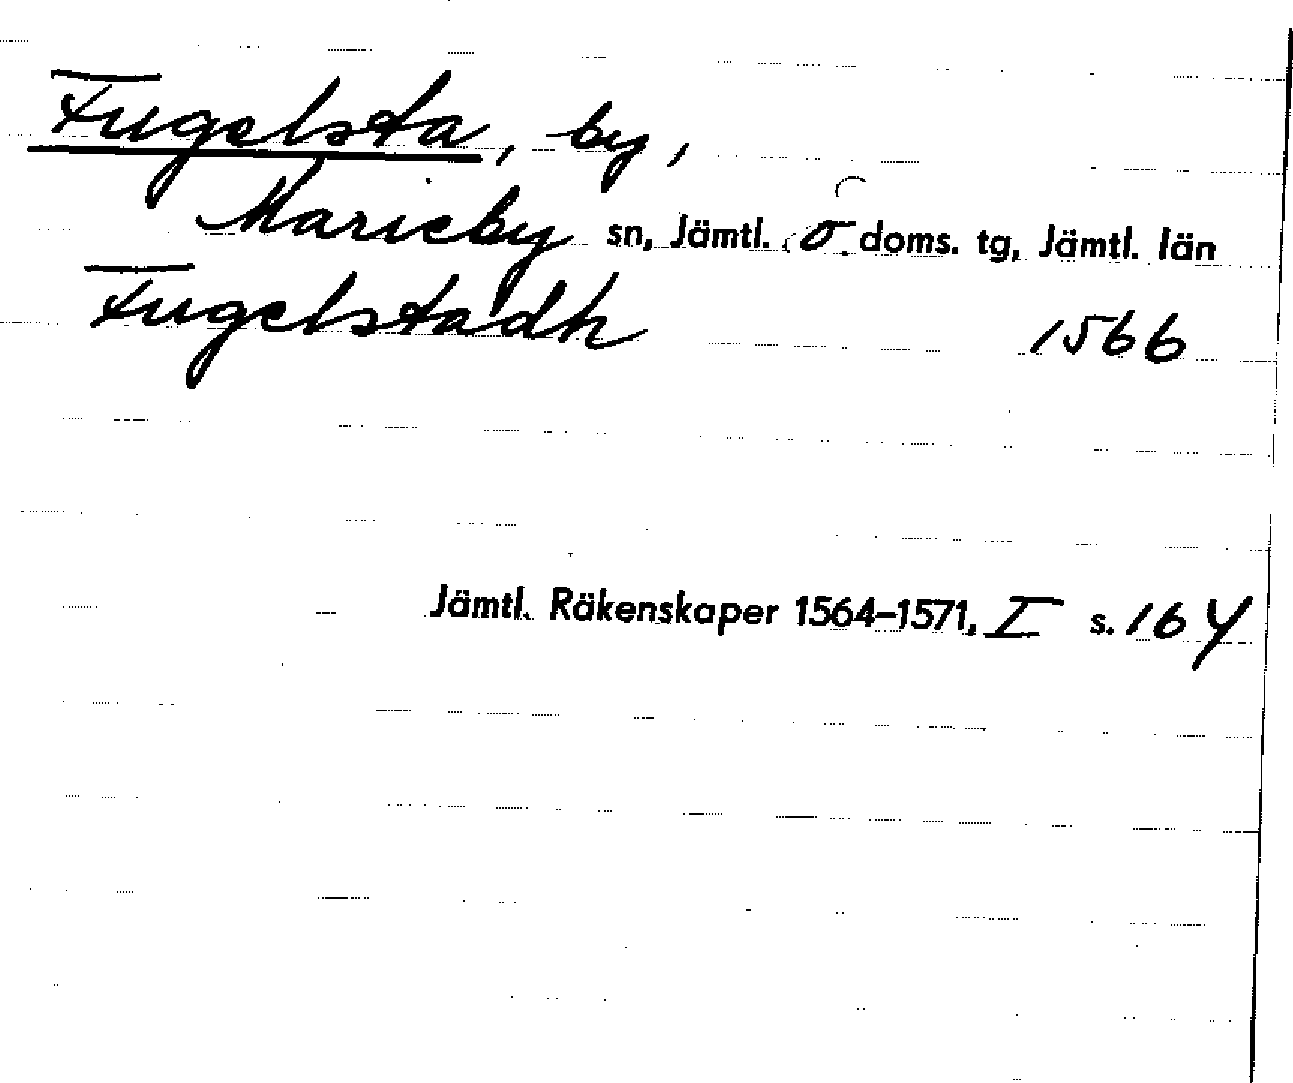 Fugelsta, by,
Marieby sn, Jämtl. ö. doms. tg, Jämtl. län
Fugelstadh 1566
Jämtl. Räkenskaper 1564–1571, I s. 164